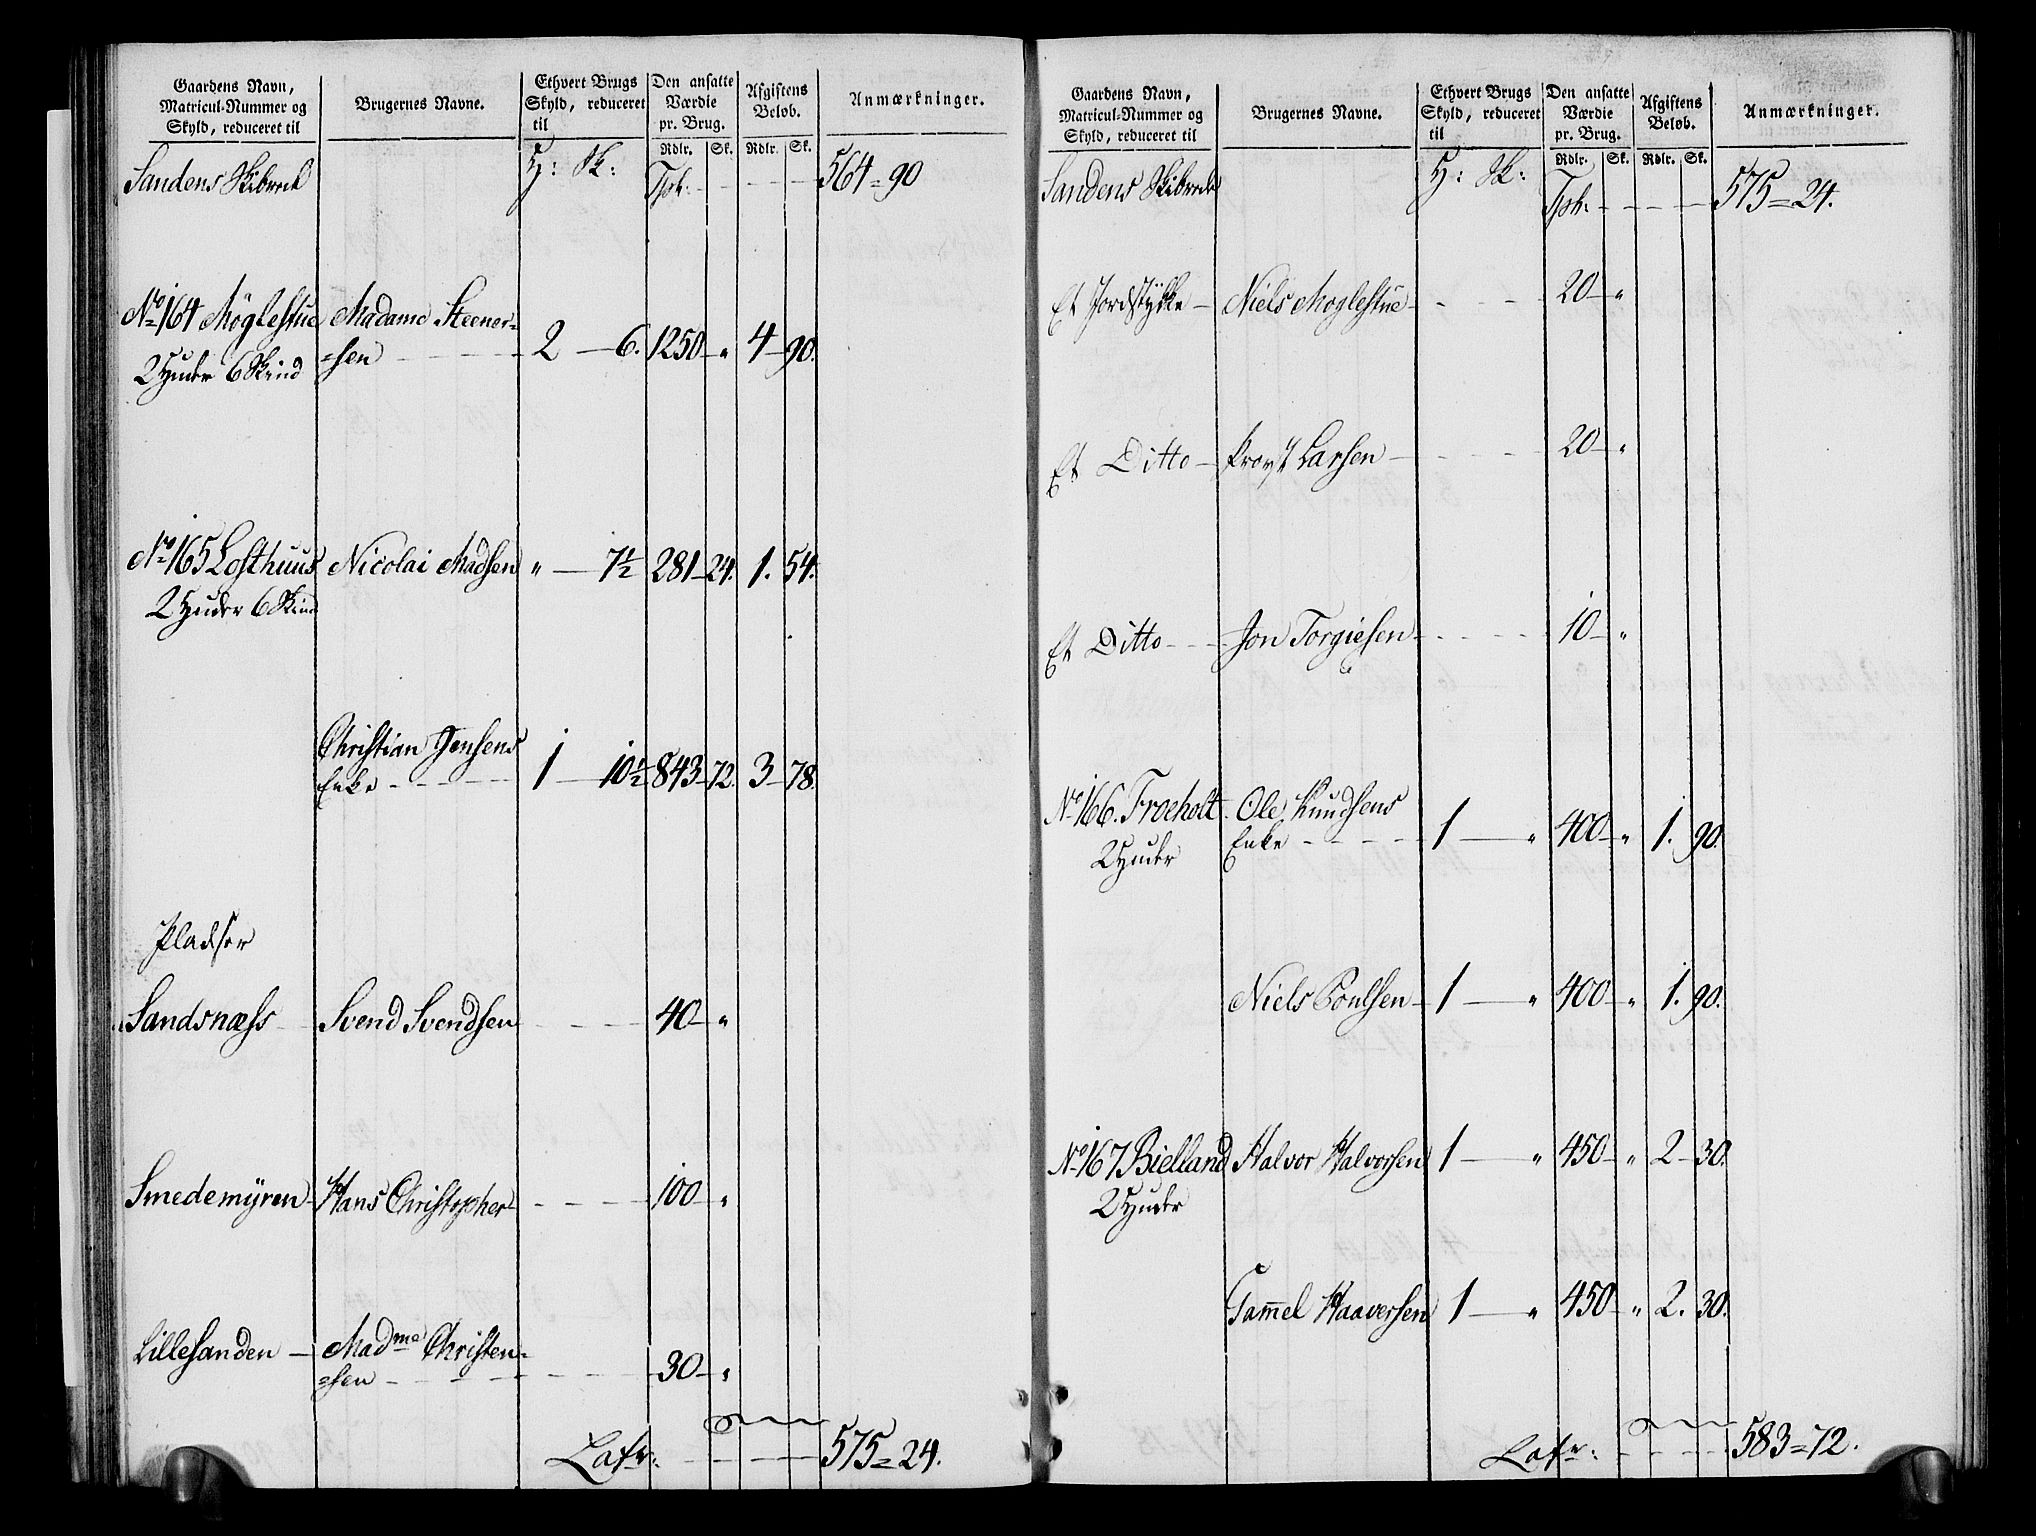 Gaardens Navn, Matricul-Nummer og Skyld, reduceret til | Brugernes Navne. | Ethvert Brugs Skyld, reduceret til | Den ansatte Værdie pr. Brug. Rdlr. Sk. | Afgiftens Beløb. Rdlr. Sk. | Anmærkninger.
Sandens Skibrede H: Sk: Tpt: 564=90
No 164 Møglestue Madame Steener=
2 Huder 6 Skind =sen 2 — 6. 1250 — " 4 — 90.
No 165 Lofthuus Nicolai Madsen " — 7½ 281 — 24. 1. 54.
2 Huder 6 Skind
Christian Jensens
Enke 1 — 10½ 843 — 72. 3 — 78.
Pladser
Sandsnæss Svend Svendsen 40 — "
Smedemyren Hans Christopher 100 — "
Lillesanden — Madme Christen=
=sen 30 — "
Latr: 575=24.
Gaardens Navn, Matricul-Nummer og Skyld, reduceret til | Brugernes Navne. | Ethvert Brugs Skyld, reduceret til | Den ansatte Værdie pr. Brug. Rdlr. Sk. | Afgiftens Beløb. Rdlr. Sk. | Anmærkninger.
Sandens Skibrede H: Sk: Tpt: 575=24.
Et Jordstykke — Niels Moglestue 20 — "
Et Ditto — Provst Larsen 20 — "
Et Ditto Jon Torgiesen 10 — "
No 166. Froeholt Ole Knudsens
2 Huder Enke 1 — " 400 — " 1. 90.
Niels Poulsen 1 — " 400 — " 1. 90.
No 167 Bielland Halvor Halvorsen 1 — " 450 — " 2 — 30.
2 Huder
Gammel Haaversen 1 — " 450 — " 2. 30.
Latr: 583=72.